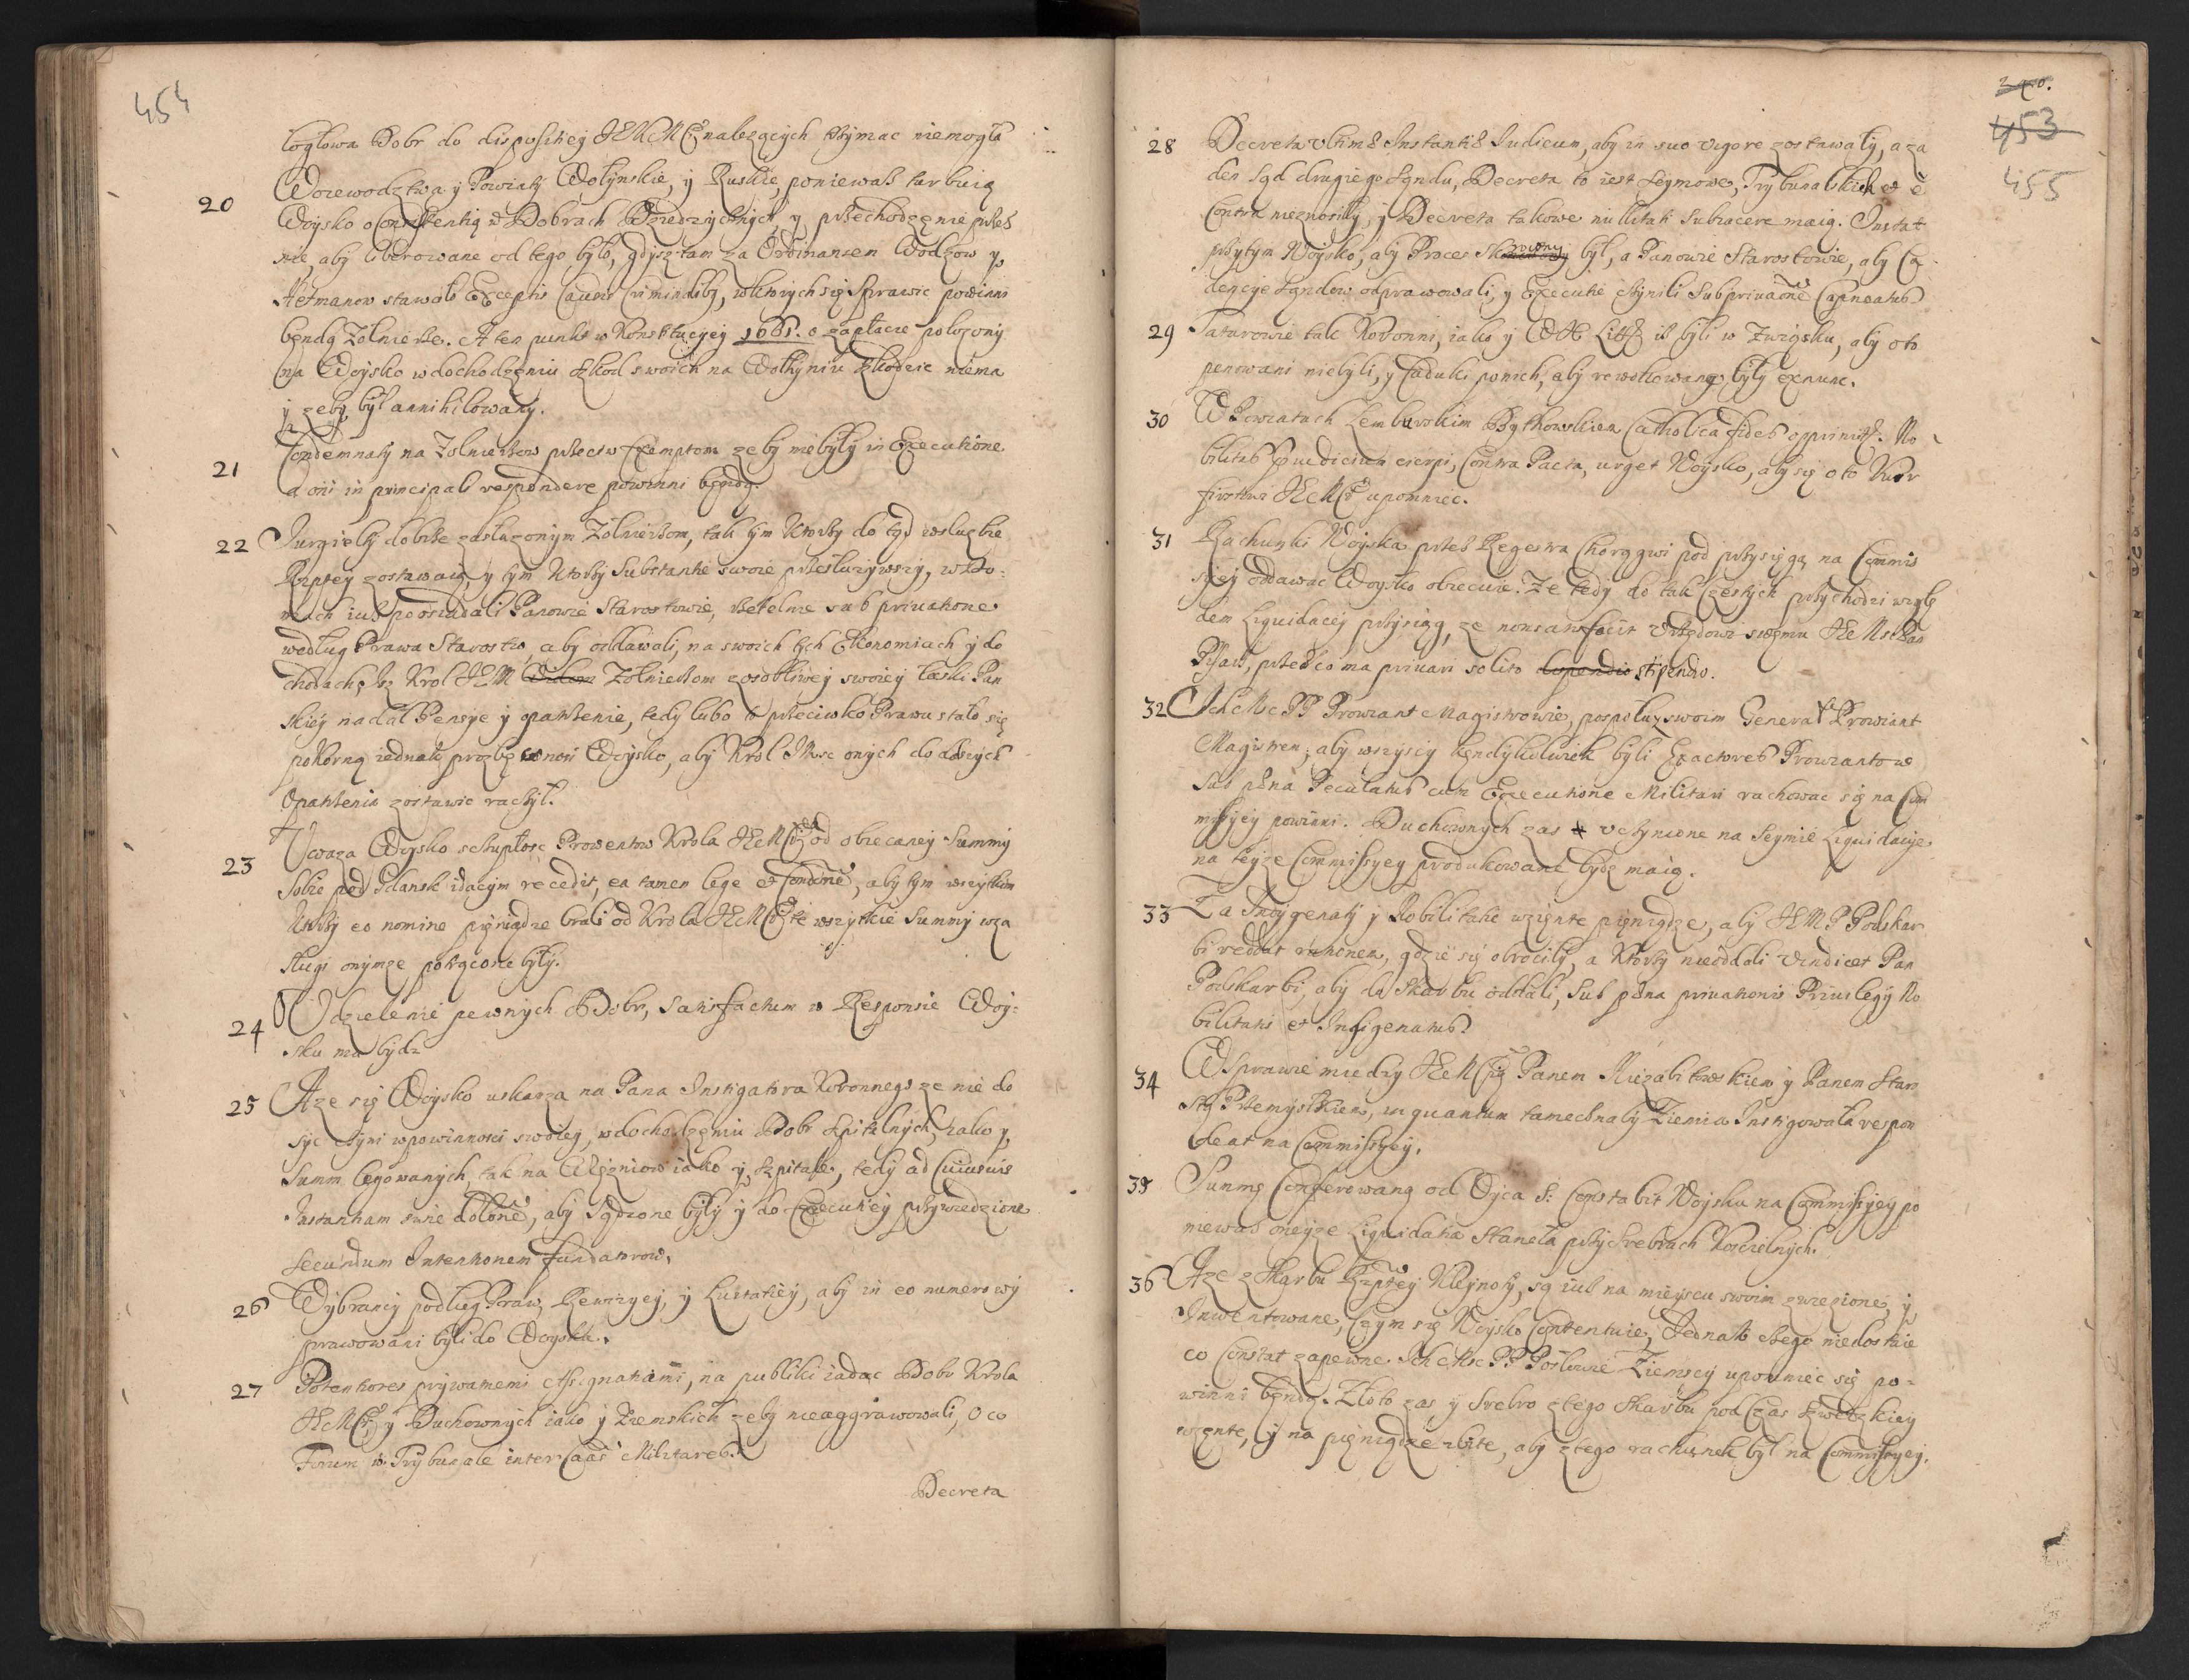 454
łogłowa Dobr do disposityey JEKMCi nalezących trzymac niemogła
20 Woiewodztwa y Powiaty Wołynskie, y Ruskie, poniewasz turbuią
Woysko o Consistentią w Dobrach Dziedzicznych, y przechodzenie przesz
nie, aby liberowane od tego było, gdysz tam za Ordinansem Wodzow y
Hetmanow stawało Exceptis Causis Criminalibus, wktorych się Sprawic powinni
bendą Zołnierze. A ten punkt w Konstitucyey 1661. o zapłacie położony
na Woysko w dochodzeniu szkod swoich na Wołyniu szkodzic niema
y zeby był annihilowany.
21 Condemnaty na Zołnierzow przeciw Exemptom zeby niebyły in Executione
a oni in principali respondere powinni będą.
22 Jurgielty dobrze zasłuzonym Zołnierzom, tak tym ktorzy do tąd wsłuzbie
Rzptey zostawaią, y tym ktorzy Substantie swoie przesłuzywszy, w do-
mach iusz poosiadali Panowie Starostowie, rzetelnie sub privatione
według Prawa Starostw, aby oddawali, na swoich tych Ekonomiach y do
chodach, Iz Krol JEM Zołnierzom zosobliwey swoiey łaski Pan
skiey nadał Pensye y opatrzenie, tedy lubo to przeciwko Prawu stało się
pokorną iednak prozbę wnosi Woysko, aby Krol JMsc onych do
Opatrzenia zostawic raczył.
23 Uwaza Woysko sczupłosc Proventow Krola JEKMCi od obiecaney Summy
Sobie pod Gdansk idącym recedit, ea tamen lege et conditione, aby tym wszytkim
ktorzy eo nomine pięniądze brali od Krola JEMCi te wszytkie Summy w za
sługi onymze potrącone były.
24 Udzielenie pewnych Dobr, Satisfactum w Responsie Woy-
sku ma bydz
25 Aze się Woysko uskarza na Pana Instigatora Koronnego ze nie do
syc czyni wpowinnosci swoiey, wdochodzęniu Dobr Szpitalnych, iako y
Summ legowanych, tak na Więzniow iako y Szpitale, tedy ad Cuiusvis
Instantiam sine dolone, aby Sądzone były y do Executiey przywiedzione
Secundum Intentionem fundatorow.
26 Wybrancy podług Praw, Rewizyey, y Lustatiey, aby in eo numero wy
prawowani byli do Woyska.
27 Potentiores prywatnemi Assignatiami, na publiki iadąc Dobr Krola
JEMCi y Duchownych iako y Ziemskich zeby nieaggrawowali, O co
Forum w Trybunale inter Caas Militares.
Decreta
290.
453
455
28 Decreta ultimæ Instantiæ Iudicum, aby in suo vigore zostawały, a za
den Sąd drugiego Sąndu, Decreta to iest Seymowe, Trybunalskich et è
Contra nieznosiły, y Decreta takowe nullitati Subiacere maią. Instat
przytym Woysko, aby Proces był, a Panowie Starostowie, aby Ca
dencye Sąndow odprawowali, y Executie czynili Sub privaone Capneatus
29 Tatarowie tak Koronni, iako y W X Litt iż byli w Związku, aby oto
penowani niebyli, y kaduki ponich, aby rewokowane były exnunc.
30 W Powiatach Lemburskim Bythowskiem Catholica fides opprimit. No
bilitas cierpi, Contra Pacta, urget Woysko, aby się o to Kur
firstowi JEKMCi upomniec.
31 Rachunki Woyska przes Regestra Chorągwi pod przysięgą na Commis
syey oddawac Woysko obiecuie. Ze tedy do tak Częstych przychodzi wzglę
dem Liquidaciey przysiąg, ze nonsatisfecit Urzędowi swęmu JEMsc Pan
Pisarz, przesco ma privari solito stipendio.
32 Ich Msc PP Prowiant Magistrowie, pospołu z swoim Generał Prowiant
Magistrem; aby wszyscy kendykolwiek byli Exactores Prowiantow
sub pæna Peculatus cum Executione Militari rachowac się na Com
missyey powinni. Duchownych zas uczynione na Seymie Liquidacye
na teyze Commissyey produkowane bydz maią.
33 Za Indygenaty y Nobilitatie wzięnte pięniądze, aby JEM P Podskar
bi reddat rationem, gdzie się obrociły, a Ktorzy nieoddali Vindicet Pan
Podskarbi, aby do Skarbu oddali, sub pæna privationis Privilegij No
bilitatis et Indigenatus.
34 W Sprawie miedzy JEMCią Panem Niezabitowskiem y Panem Staro
stą Przemyskiem, in quantum tamecznaby Ziemia Instigowała respon
deat na Commissyey.
35 Summę Conferowaną od Oyca S. Constabit Woysku na Commissyey po
niewasz oneyze Liquidatia stanęła przy Srebrach Koscielnych.
36 Aze z Skarbu Rzptey Kleynoty, są iusz na mieyscu swoim zwiezione, y
Inwentowane, czym się Woysko Contentuie, Jednak czego niedostaie
co Constat zapewne Ich Msc PP Posłowie Ziemscy upomniec się po-
winni będą. Złoto zas y Srebro z tego Skarbu pod czas Szwedzkiey
wzęnte, y na pięniądze zbite, aby z tego rachunek był na Commissyey.